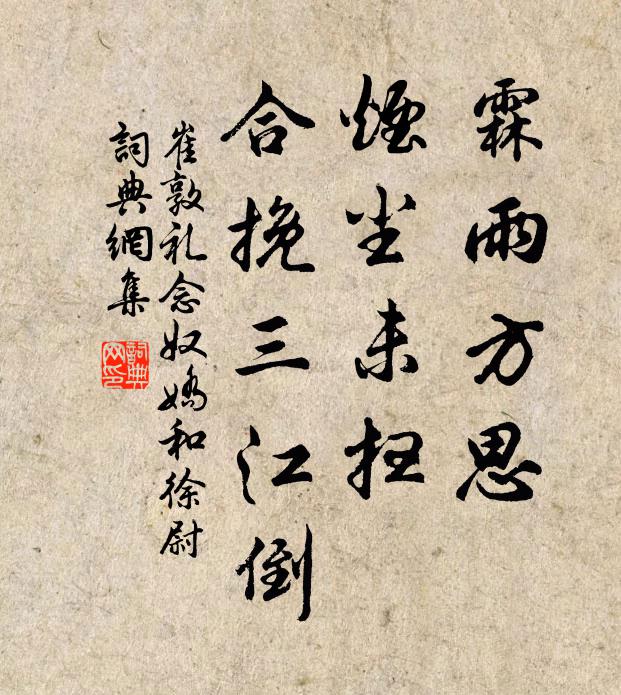 霖雨方思
煙尘未扫
合挽三江倒
崔敦礼念奴嬌和徐尉
詞典網集
詞典网印